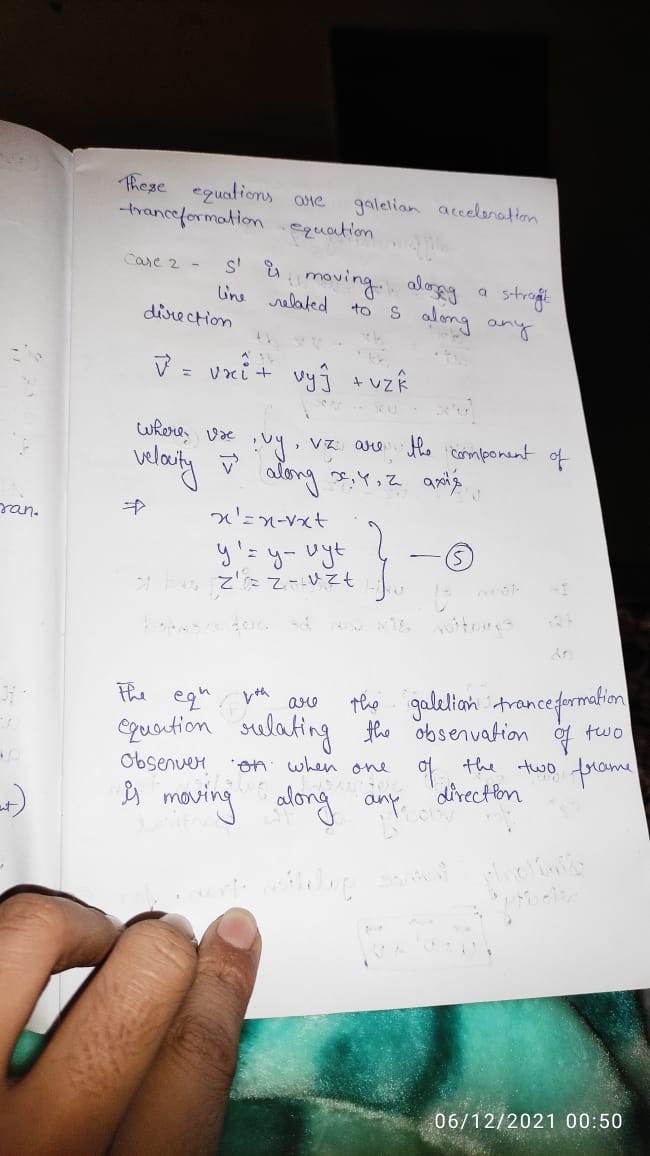 These equations are galelian acceleration
tranceformation equation
Case 2 - S' is moving along a stragit
line related to S along any
direction
V⃗ = vxî + vyĵ + vzk̂
where, vx, vy, vz are the component of
velocity V⃗ along x, Y, Z axis
⇒ x' = x-vxt
y' = y- vyt
z' = z-vzt } — ⑤
The eqⁿ vᵗʰ are the galelian tranceformation
equation relating the observation of two
observer on when one of the two frame
is moving along any direction
ran.
06/12/2021 00:50